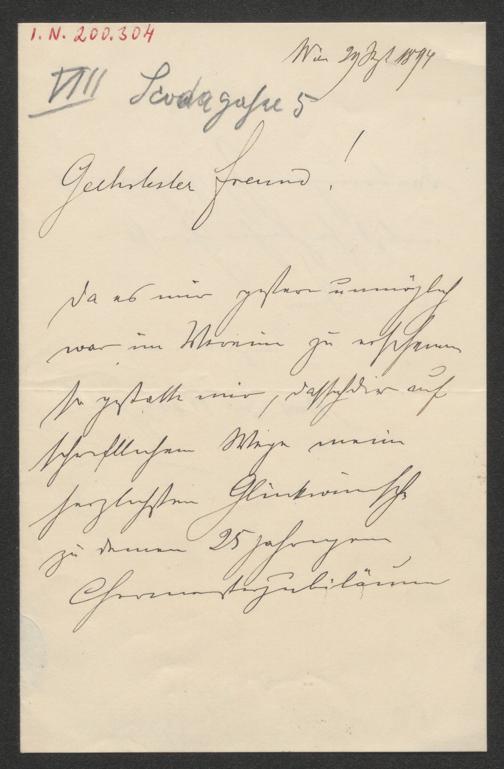 I. N. 200.304
Wien 29 Sept 1894
VIII Skodagasse 5
Geehrtester Freund!
Da es mir gestern unmöglich
war im Verein zu erscheinen
so gestatte mir, dass ich dir auf
schriftlichem Wege meine
herzlichsten Glückwünsche
zu deinem 25 jährigem
Chormeisterjubiläum